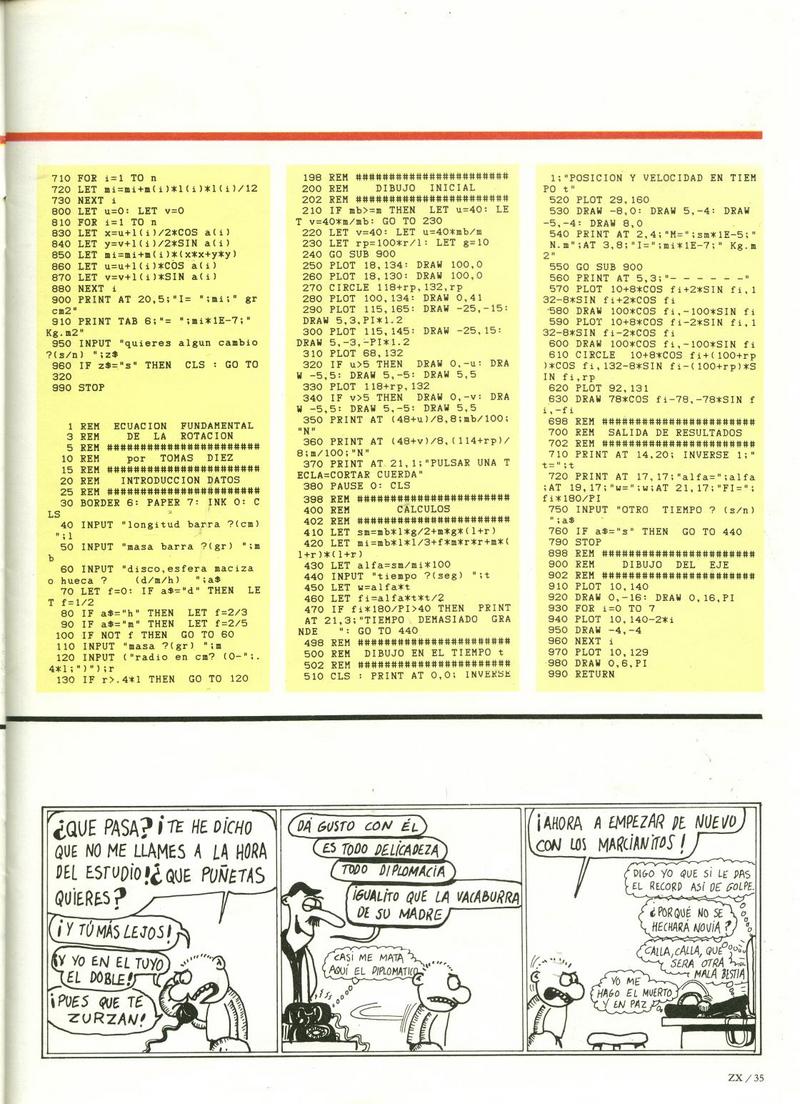 710 FOR i=1 TO n
720 LET mi=mi+m(i)*l(i)*l(i)/12
730 NEXT i
800 LET u=0: LET v=0
810 FOR i=1 TO n
830 LET x=u+l(i)/2*COS a(i)
840 LET y=v+l(i)/2*SIN a(i)
850 LET mi=mi+m(i)*(x*x+y*y)
860 LET u=u+l(i)*COS a(i)
870 LET v=v+l(i)*SIN a(i)
880 NEXT i
900 PRINT AT 20,5;"I= ";mi;" gr
cm2"
910 PRINT TAB 6;"= ";mi*1E-7;"
Kg.m2"
950 INPUT "quieres algun cambio
?(s/n) ";z$
960 IF z$="s" THEN CLS : GO TO
320
990 STOP
1 REM ECUACION FUNDAMENTAL
3 REM DE LA ROTACION
5 REM #######################
10 REM por TOMAS DIEZ
15 REM #######################
20 REM INTRODUCCION DATOS
25 REM #######################
30 BORDER 6: PAPER 7: INK 0: C
LS
40 INPUT "longitud barra ?(cm)
";l
50 INPUT "masa barra ?(gr) ";m
b
60 INPUT "disco,esfera maciza
o hueca ? (d/m/h) ";a$
70 LET f=0: IF a$="d" THEN LE
T f=1/2
80 IF a$="h" THEN LET f=2/3
90 IF a$="m" THEN LET f=2/5
100 IF NOT f THEN GO TO 60
110 INPUT "masa ?(gr) ";m
120 INPUT ("radio en cm? (0-";.
4*l;")");r
130 IF r>.4*l THEN GO TO 120
198 REM #######################
200 REM DIBUJO INICIAL
202 REM #######################
210 IF mb>=m THEN LET u=40: LE
T v=40*m/mb: GO TO 230
220 LET v=40: LET u=40*mb/m
230 LET rp=100*r/l: LET g=10
240 GO SUB 900
250 PLOT 18,134: DRAW 100,0
260 PLOT 18,130: DRAW 100,0
270 CIRCLE 118+rp,132,rp
280 PLOT 100,134: DRAW 0,41
290 PLOT 115,165: DRAW -25,-15:
DRAW 5,3,PI*1.2
300 PLOT 115,145: DRAW -25,15:
DRAW 5,-3,-PI*1.2
310 PLOT 68,132
320 IF u>5 THEN DRAW 0,-u: DRA
W -5,5: DRAW 5,-5: DRAW 5,5
330 PLOT 118+rp,132
340 IF v>5 THEN DRAW 0,-v: DRA
W -5,5: DRAW 5,-5: DRAW 5,5
350 PRINT AT (48+u)/8,8;mb/100;
"N"
360 PRINT AT (48+v)/8,(114+rp)/
8;m/100;"N"
370 PRINT AT 21,1;"PULSAR UNA T
ECLA=CORTAR CUERDA"
380 PAUSE 0: CLS
398 REM #######################
400 REM CALCULOS
402 REM #######################
410 LET sm=mb*l*g/2+m*g*(l+r)
420 LET mi=mb*l*l/3+f*m*r*r+m*(
l+r)*(l+r)
430 LET alfa=sm/mi*100
440 INPUT "tiempo ?(seg) ";t
450 LET w=alfa*t
460 LET fi=alfa*t*t/2
470 IF fi*180/PI>40 THEN PRINT
AT 21,3;"TIEMPO DEMASIADO GRA
NDE ": GO TO 440
498 REM #######################
500 REM DIBUJO EN EL TIEMPO t
502 REM #######################
510 CLS : PRINT AT 0,0; INVERSE
1;"POSICION Y VELOCIDAD EN TIEM
PO t"
520 PLOT 29,160
530 DRAW -8,0: DRAW 5,-4: DRAW
-5,-4: DRAW 8,0
540 PRINT AT 2,4;"M=";sm*1E-5;"
N.m";AT 3,8;"I=";mi*1E-7;" Kg.m
2"
550 GO SUB 900
560 PRINT AT 5,3;"- - - - - -"
570 PLOT 10+8*COS fi+2*SIN fi,1
32-8*SIN fi+2*COS fi
580 DRAW 100*COS fi,-100*SIN fi
590 PLOT 10+8*COS fi-2*SIN fi,1
32-8*SIN fi-2*COS fi
600 DRAW 100*COS fi,-100*SIN fi
610 CIRCLE 10+8*COS fi+(100+rp
)*COS fi,132-8*SIN fi-(100+rp)*S
IN fi,rp
620 PLOT 92,131
630 DRAW 78*COS fi-78,-78*SIN f
i,-fi
698 REM #######################
700 REM SALIDA DE RESULTADOS
702 REM #######################
710 PRINT AT 14,20; INVERSE 1;"
t=";t
720 PRINT AT 17,17;"alfa=";alfa
;AT 19,17;"w=";w;AT 21,17;"FI=";
fi*180/PI
750 INPUT "OTRO TIEMPO ? (s/n)
";a$
760 IF a$="s" THEN GO TO 440
790 STOP
898 REM #######################
900 REM DIBUJO DEL EJE
902 REM #######################
910 PLOT 10,140
920 DRAW 0,-16: DRAW 0,16,PI
930 FOR i=0 TO 7
940 PLOT 10,140-2*i
950 DRAW -4,-4
960 NEXT i
970 PLOT 10,129
980 DRAW 0,6,PI
990 RETURN
¿QUE PASA? ¡TE HE DICHO
QUE NO ME LLAMES A LA HORA
DEL ESTUDIO! ¿QUE PUÑETAS
QUIERES?
¡Y TÚ MÁS LEJOS!
¡Y YO EN EL TUYO
EL DOBLE!
¡PUES QUE TE
ZURZAN!
DÁ GUSTO CON ÉL
ES TODO DELICADEZA
TODO DIPLOMACIA
IGUALITO QUE LA VACABURRA
DE SU MADRE
CASI ME MATA
AQUÍ EL DIPLOMATICO
¡AHORA A EMPEZAR DE NUEVO
CON LOS MARCIANITOS!
DIGO YO QUE SI LE DAS
EL RECORD ASÍ DE GOLPE
¿PORQUÉ NO SE
HECHARÁ NOVIA?
CALLA, CALLA, QUE
SERA OTRA
MALA BESTIA
YO ME
HAGO EL MUERTO
Y EN PAZ
ZX / 35